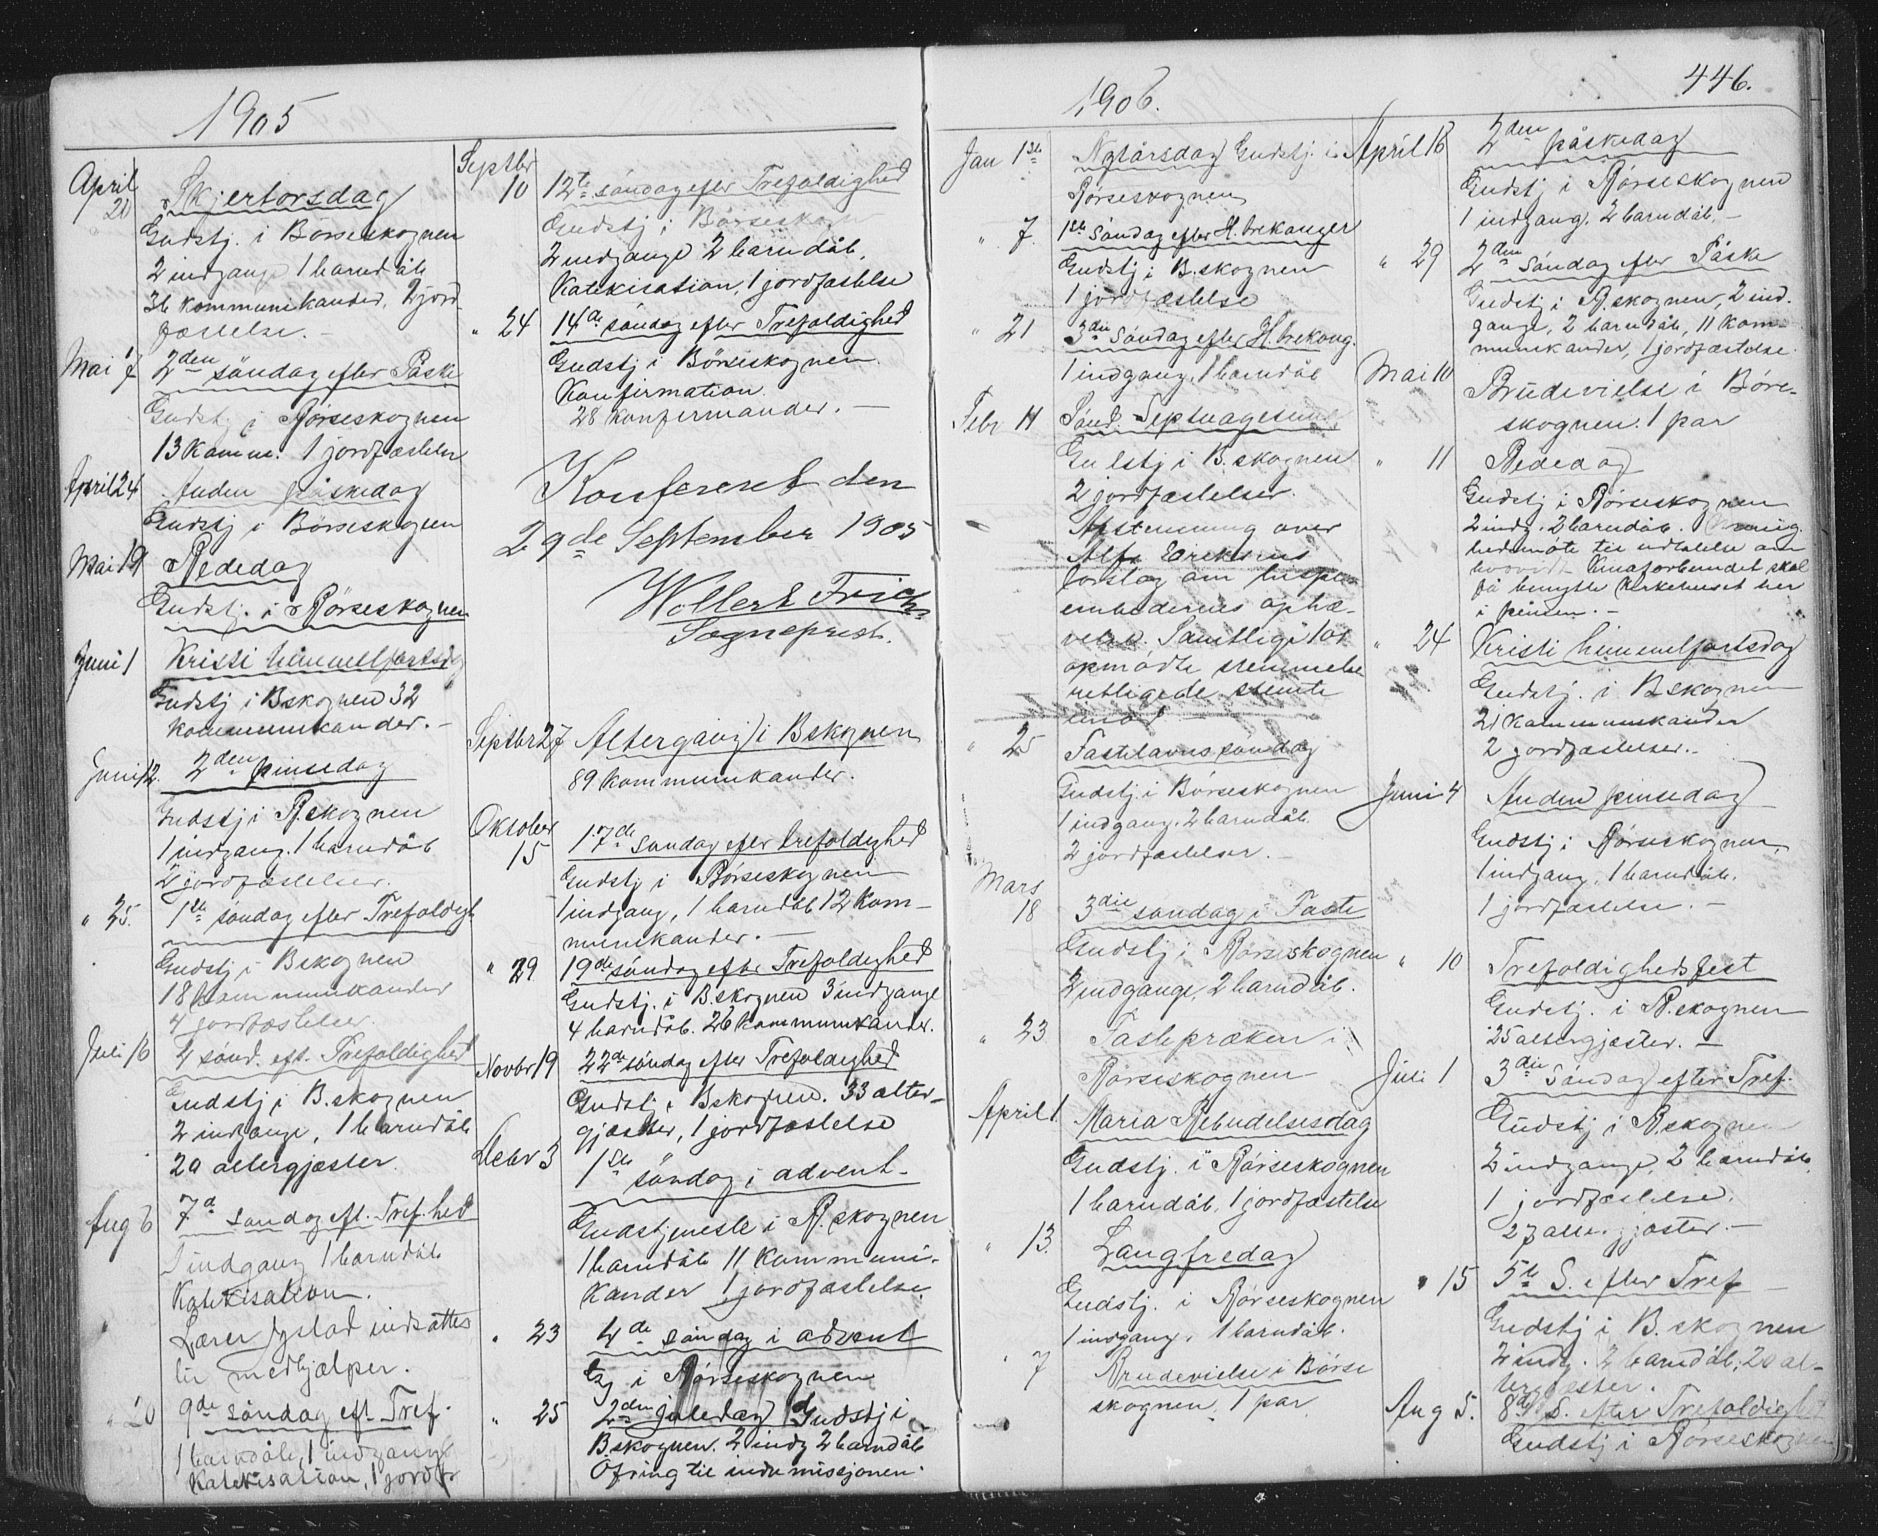 1905
April 20 Skjertorsdag
Gudstj. i Børseskognen
2 indgange 1 barndåb
36 kommunikander, 2 jord
fæstelse. –
Mai 7 2den søndag efter Påske
Gudstj i Børseskognen
13 Komm. 1 jordfæstelse
April 24 Anden påskedag
Gudstj i Børseskognen
Mai 19 Bededag
Gudstj. i Børseskognen
Juni 1 Kristi himmelfartsdag
Gudstj i Bskognen 32
kommunikander. –
Juni 12. 2den pinsedag
Gudstj i B.skognen
1 indgang. 1 barndåb
2 jordfæstelser.
" 25. 1ste søndag efter Trefoldigh
Gudstj i Bskognen
18 kommunikander
4 jordfæstelser.
Juli 16 4 sønd. eft. Trefoldighed
Gudstj i B.skognen
2 indgange, 1 barndåb
20 altergjæster.
Aug 6 7d søndag eft. Tref.hed
1 indgang 1 barndåb
Katekisation.
Lærer indsættes
til medhjælper.
" 20 9de søndag eft. Tref.
1 barndåb, 1 indgang
Katekisation, 1 jordf
Septbr 10 12te søndag efter Trefoldighed
Gudstj i Børseskogn
2 indgange 2 barndåb,
Katekisation, 1 jordfæstelse
" 24 14de søndag efter Trefoldighed
Gudstj i Børseskognen.
Konfirmation.
28 konfirmander. –
Konfereret den
29de September 1905
Wollert
Sogneprest.
Septbr 27 Altergang i Bskognen
89 kommunikander.
Oktober 15 17de søndag efter trefoldighed
Gudstj i Børseskognen
1 indgang, 1 barndåb 12 kom-
munikander. –
" 29 19de søndag efter Trefoldighed
Gudstj. i B.skognen 3 indgange
4 barndåb. 26 kommunikander.
Novbr 19 22de søndag efter Trefoldighed
Gudstj i Bskognen. 33 alter-
gjæster, 1 jordfæstelse
Debr 3 1ste søndag i advent.
Gudstjeneste i B.skognen
1 barndåb 11 kommuni-
kander 1 jordfæstelse
" 23 4de søndag i advent
i Børseskognen
" 25 2den juledag Gudstj i
B.skognen. 2 indg 2 barndåb
Ofring til indremissjonen.
1906.
446.
Jan 1ste Nytårsdag Gudstj. i
Børseskognen
" 7. 1ste Søndag efter H. trekonger
Gudstj i B.skognen
1 jordfæstelse
" 21 3die Søndag efter H. trekong.
1 indgang, 1 barndåb
Febr 11 Sønd. Septuagesima
Gudstj i B.skognen
2 jordfæstelser.
Afstemning over
Alfr Eriksens
forslag om bispe-
embedernes ophæ-
velse. Samtlige 101
opmødte stemmebe
rettigede stemte
imod
" 25 Fastelavnssøndag
Gudstj. i Børseskognen
1 indgang, 2 barndåb.
2 jordfæstelser. –
Mars 18 3die søndag i Faste
Gudstj i Børseskognen
2 indgange, 2 barndåb.
" 23 Fastepræken i
Børseskognen
April 1 Maria Bebudelsesdag
Gudstj. i Børseskognen
1 barndåb, 1 jordfæstelse
" 13. Langfredag
Gudstj. i Børseskognen
1 indgang. 1 barndåb.
" 7 Brudevielse i Børse
skognen. 1 par
April 16 2den påskedag
Gudstj i Børseskognen
1 indgang. 2 barndåb. –
" 29 2den Søndag efter Påske
Gudstj i B.skognen, 2 ind.
gange, 2 barndåb, 11 kom-
munikander, 1 jordfæstelse.
Mai 10 Brudevielse i Børse-
skognen. 1 par
" 11 Bededag
Gudstj i Børseskognen
2 indg. 2 barndåb. Menig.
hedsmøte til udtalelse om
hvorvidt Kinaforbundet skal
få benytte kirkehuset her
i pinsen. –
" 24 Kristi himmelfartsdag
Gudstj. i Bskognen
21 kommunikander
2 jordfæstelser. –
Juni 4 Anden pinsedag
Gudstj i Børseskognen,
1 indgang, 1 barndåb.
1 jordfæstelse. –
" 10 Trefoldighedsfest
Gudstj. i B.skognen
25 altergjæster. –
Juli 1 3die Søndag efter Tref.
Gudstj i B.skognen
2 indgange, 2 barndåb.
1 jordfæstelse.
27 altergjæster. –
" 15 5te S. efter Tref
Gudstj i B.skognen
2 indg. 2 barndåb, 20 al-
tergjæster.
Aug 5. 8de S. efter Trefoldighed
Gudstj i Børseskognen